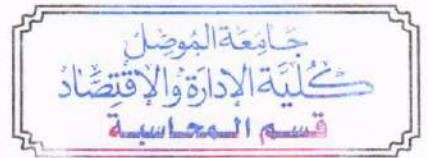 جَامِعَة المُوصِل
كُليَّة الإدَارَة وَالإقْتِصَاد
قسم المحاسبة